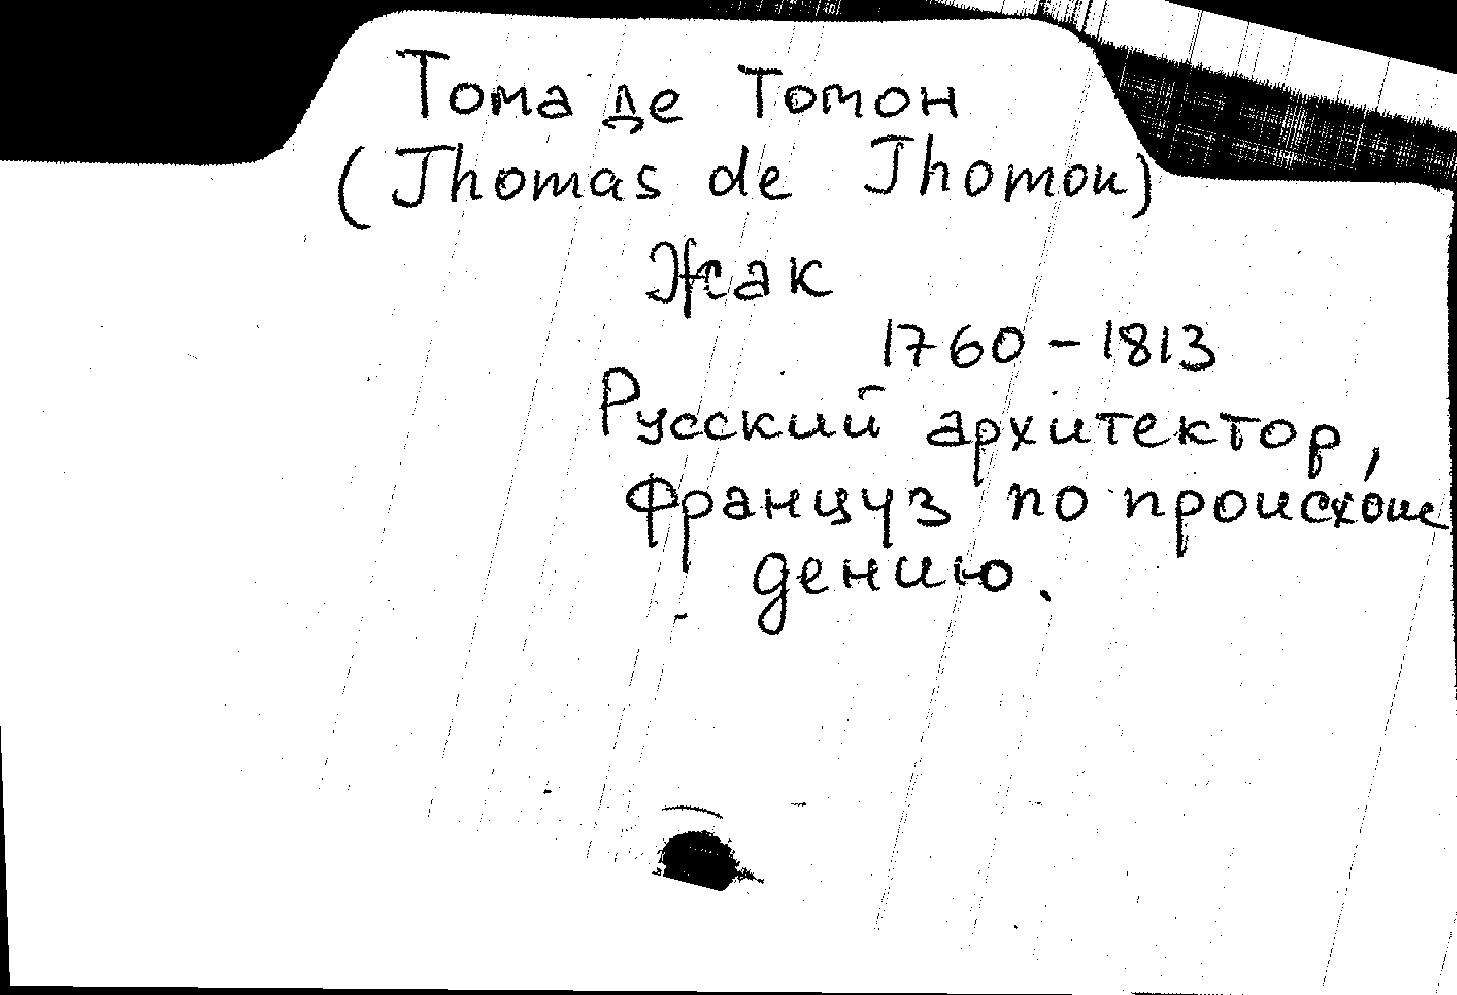 Тома де Томон
(Thomas de Thomon)
Жак
1760 – 1813
Русский архитектор,
француз по происхож
дению.